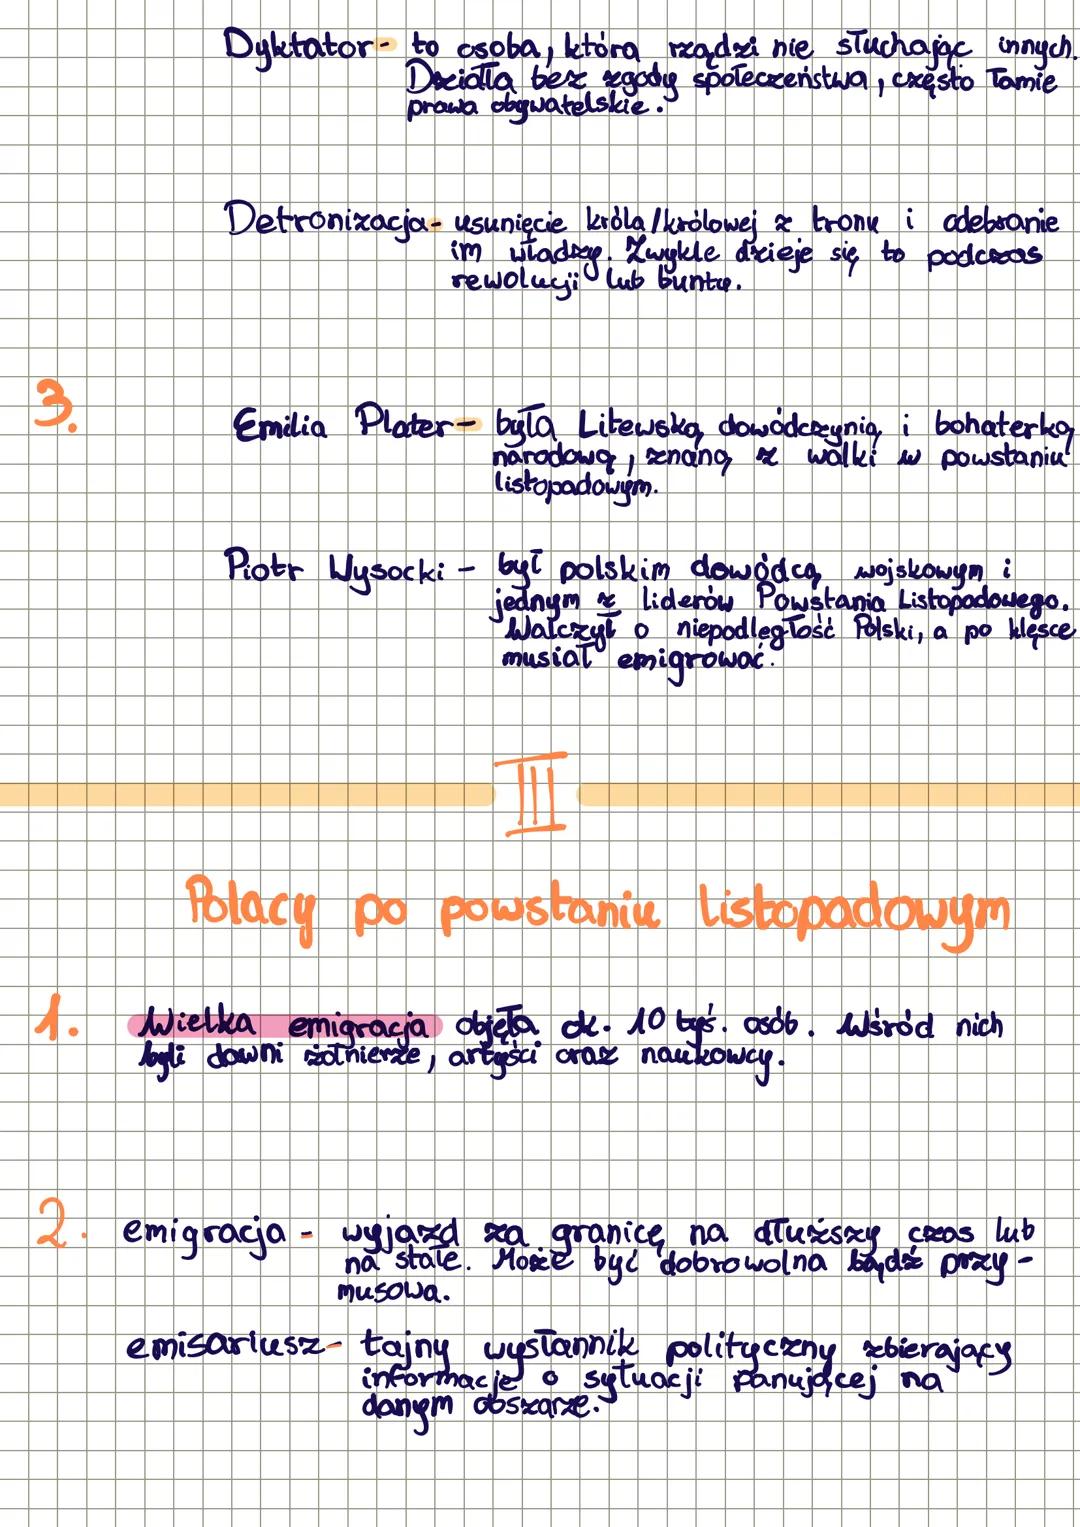 Dyktator - to osoba, która rządzi nie słuchając innych.
Działa bez zgody społeczeństwa, często łamie
prawa obywatelskie.
Detronizacja - usunięcie króla/królowej z tronu i odebranie
im władzy. Zwykle dzieje się to podczas
rewolucji lub buntu.
3.
Emilia Plater - była Litewską dowódczynią i bohaterką
narodową, znaną z walki w powstaniu
listopadowym.
Piotr Wysocki - był polskim dowódcą wojskowym i
jednym z liderów Powstania Listopadowego.
Walczył o niepodległość Polski, a po klęsce
musiał emigrować.
III
Polacy po powstaniu listopadowym
1. Wielka emigracja objęła ok. 10 tyś. osób. Wśród nich
byli dawni żołnierze, artyści oraz naukowcy.
2. emigracja - wyjazd za granicę na dłuższy czas lub
na stałe. Może być dobrowolna bądź przy-
musowa.
emisariusz - tajny wysłannik polityczny zbierający
informacje o sytuacji panującej na
danym obszarze.